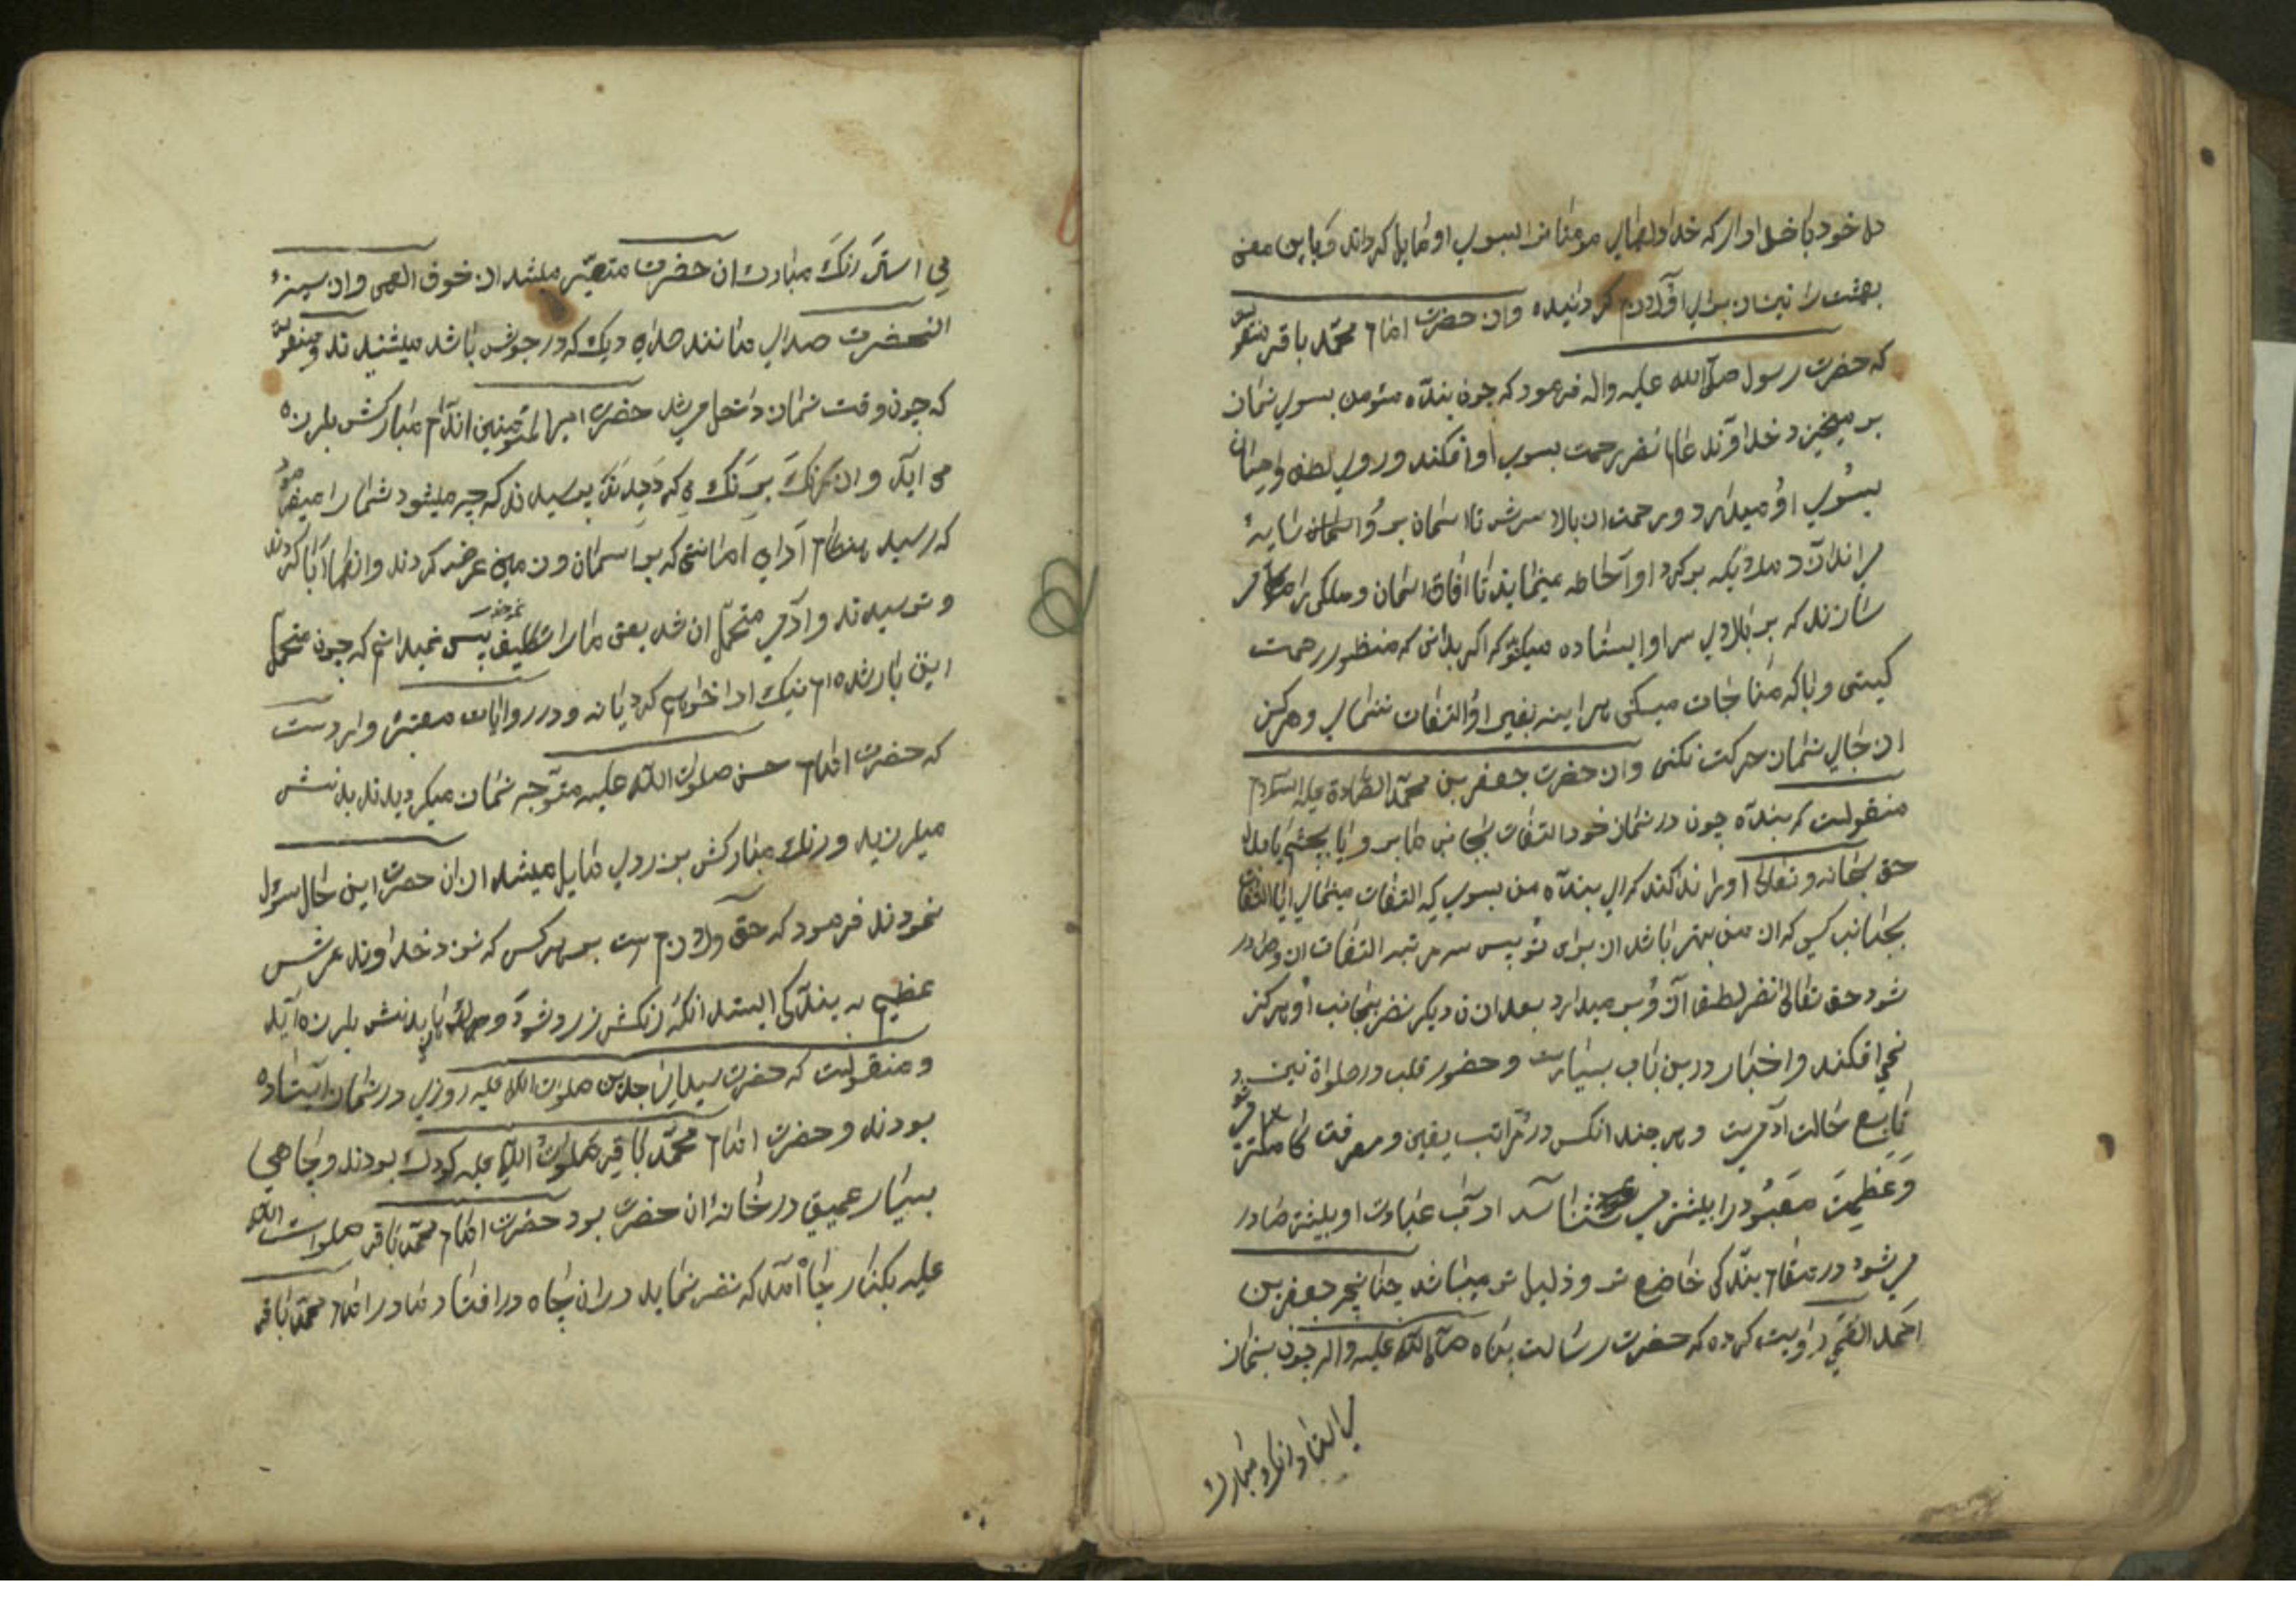 دل خود با خدا دار که خدا دلهای مومنان را بسوی او مایل کرداند و باین معنی
بهشت را نیز از برای او لازم کردانیده و از حضرت امام محمد باقر منقولست
که حضرت رسول صلی الله علیه واله فرمود که چون بندٔه مؤمن بسوی نماز
بر میخیزد خداوند عالم نظر رحمت بسوی او افکند و روی لطف و احسان
بسوی او میدارد و رحمت از بالای سرش تا اسمان بر و سایهٔ
می اندازد و ملائیکه بر کرد او احاطه مینمایند تا افاق اسمان و ملکی را مقرر
سازند که بر بالای سر او ایستاده میکوید که اکر بدانی که منظور رحمت
کیستی و با که مناجات میکنی هر اینه بغیر او التفات ننمایی و هرکز
از جای نماز حرکت نکنی و از حضرت جعفر بن محمد الصادق علیه السلام
منقولست که بندٔه چون در نماز خود التفات بجانبی نماید و یا بچشم یا بدل
حق سبحانه و تعالی او را ندا کند که ای بندٔه من بسوی که التفات مینمایی ایا التفات
بجانب کسی که از من بهتر باشد از برای تو پس سه مرتبه التفات از و صادر
شود حق تعالی نظر لطف از و بر میدارد بعد از ان دیکر نظر بجانب او هرکز
نمی افکند و اخبار درین باب بسیارست و حضور قلب در صلواة نیز
تابع حالت آدمیست و هر چند انکس در مراتب یقین و معرفت کاملتر
و عظمت معبود را بیشتر می شناسد ادآب عبادت او بیشتر صادر
می شود در مقام بندکی خاضع تر و ذلیل تر میباشد چنانچه جعفر بن
احمد القمی راویت کرده که حضرت رسالت پناه صلی الله علیه واله چون بنماز
می استاد رنک مبارک
می استاد رنک مبارک ان حضرت متغیر میشد از خوف الهی و از سینهٔ
انحضرت صدایی مانند صدای دیک که در جوش باشد میشنیدند و منقولست
که چون وقت نماز داخل میشد حضرت امیر المؤمنین اندام مبارکش بلرزه
می آید و از رنک برنک می کردید پرسیدند که چه میشود شما را میفرمود
که رسید هنکام ادای امانتی که بر اسمان و زمین عرض کردند و انها ابا کردند
و ترسیدند و ادمی متحمل ان شد یعنی ما را تکلیف پس نمیدانم که چون متحمل
این بار شده ام نیک ادا خواهم کرد یا نه و در روایات معتبره واردست
که حضرت امام حسن صلوات الله علیه متوجه نماز میکردیدند بدنش
میلرزید و رنک مبارکش بزردی مایل میشد از ان حضرت این حال سؤال
نمودند فرمود که حق و لازم ست بر هر کس که نزد خداوند عرش
عظیم به بندکی ایستد انکه رنکش زرد شود و بدنش بلرزه آید
و منقولست که حضرت سید الساجدین صلوات الله علیه روزی در نماز ایستاده
بودند و حضرت امام محمد باقر صلوات الله علیه کودک بودند و چاهی
بسیار عمیق در خانه ان حضرت بود حضرت امام محمد باقر صلوات الله
علیه بکنار چاه آمد که نظر نماید در ان چاه در افتاد مادر امام محمد باقر